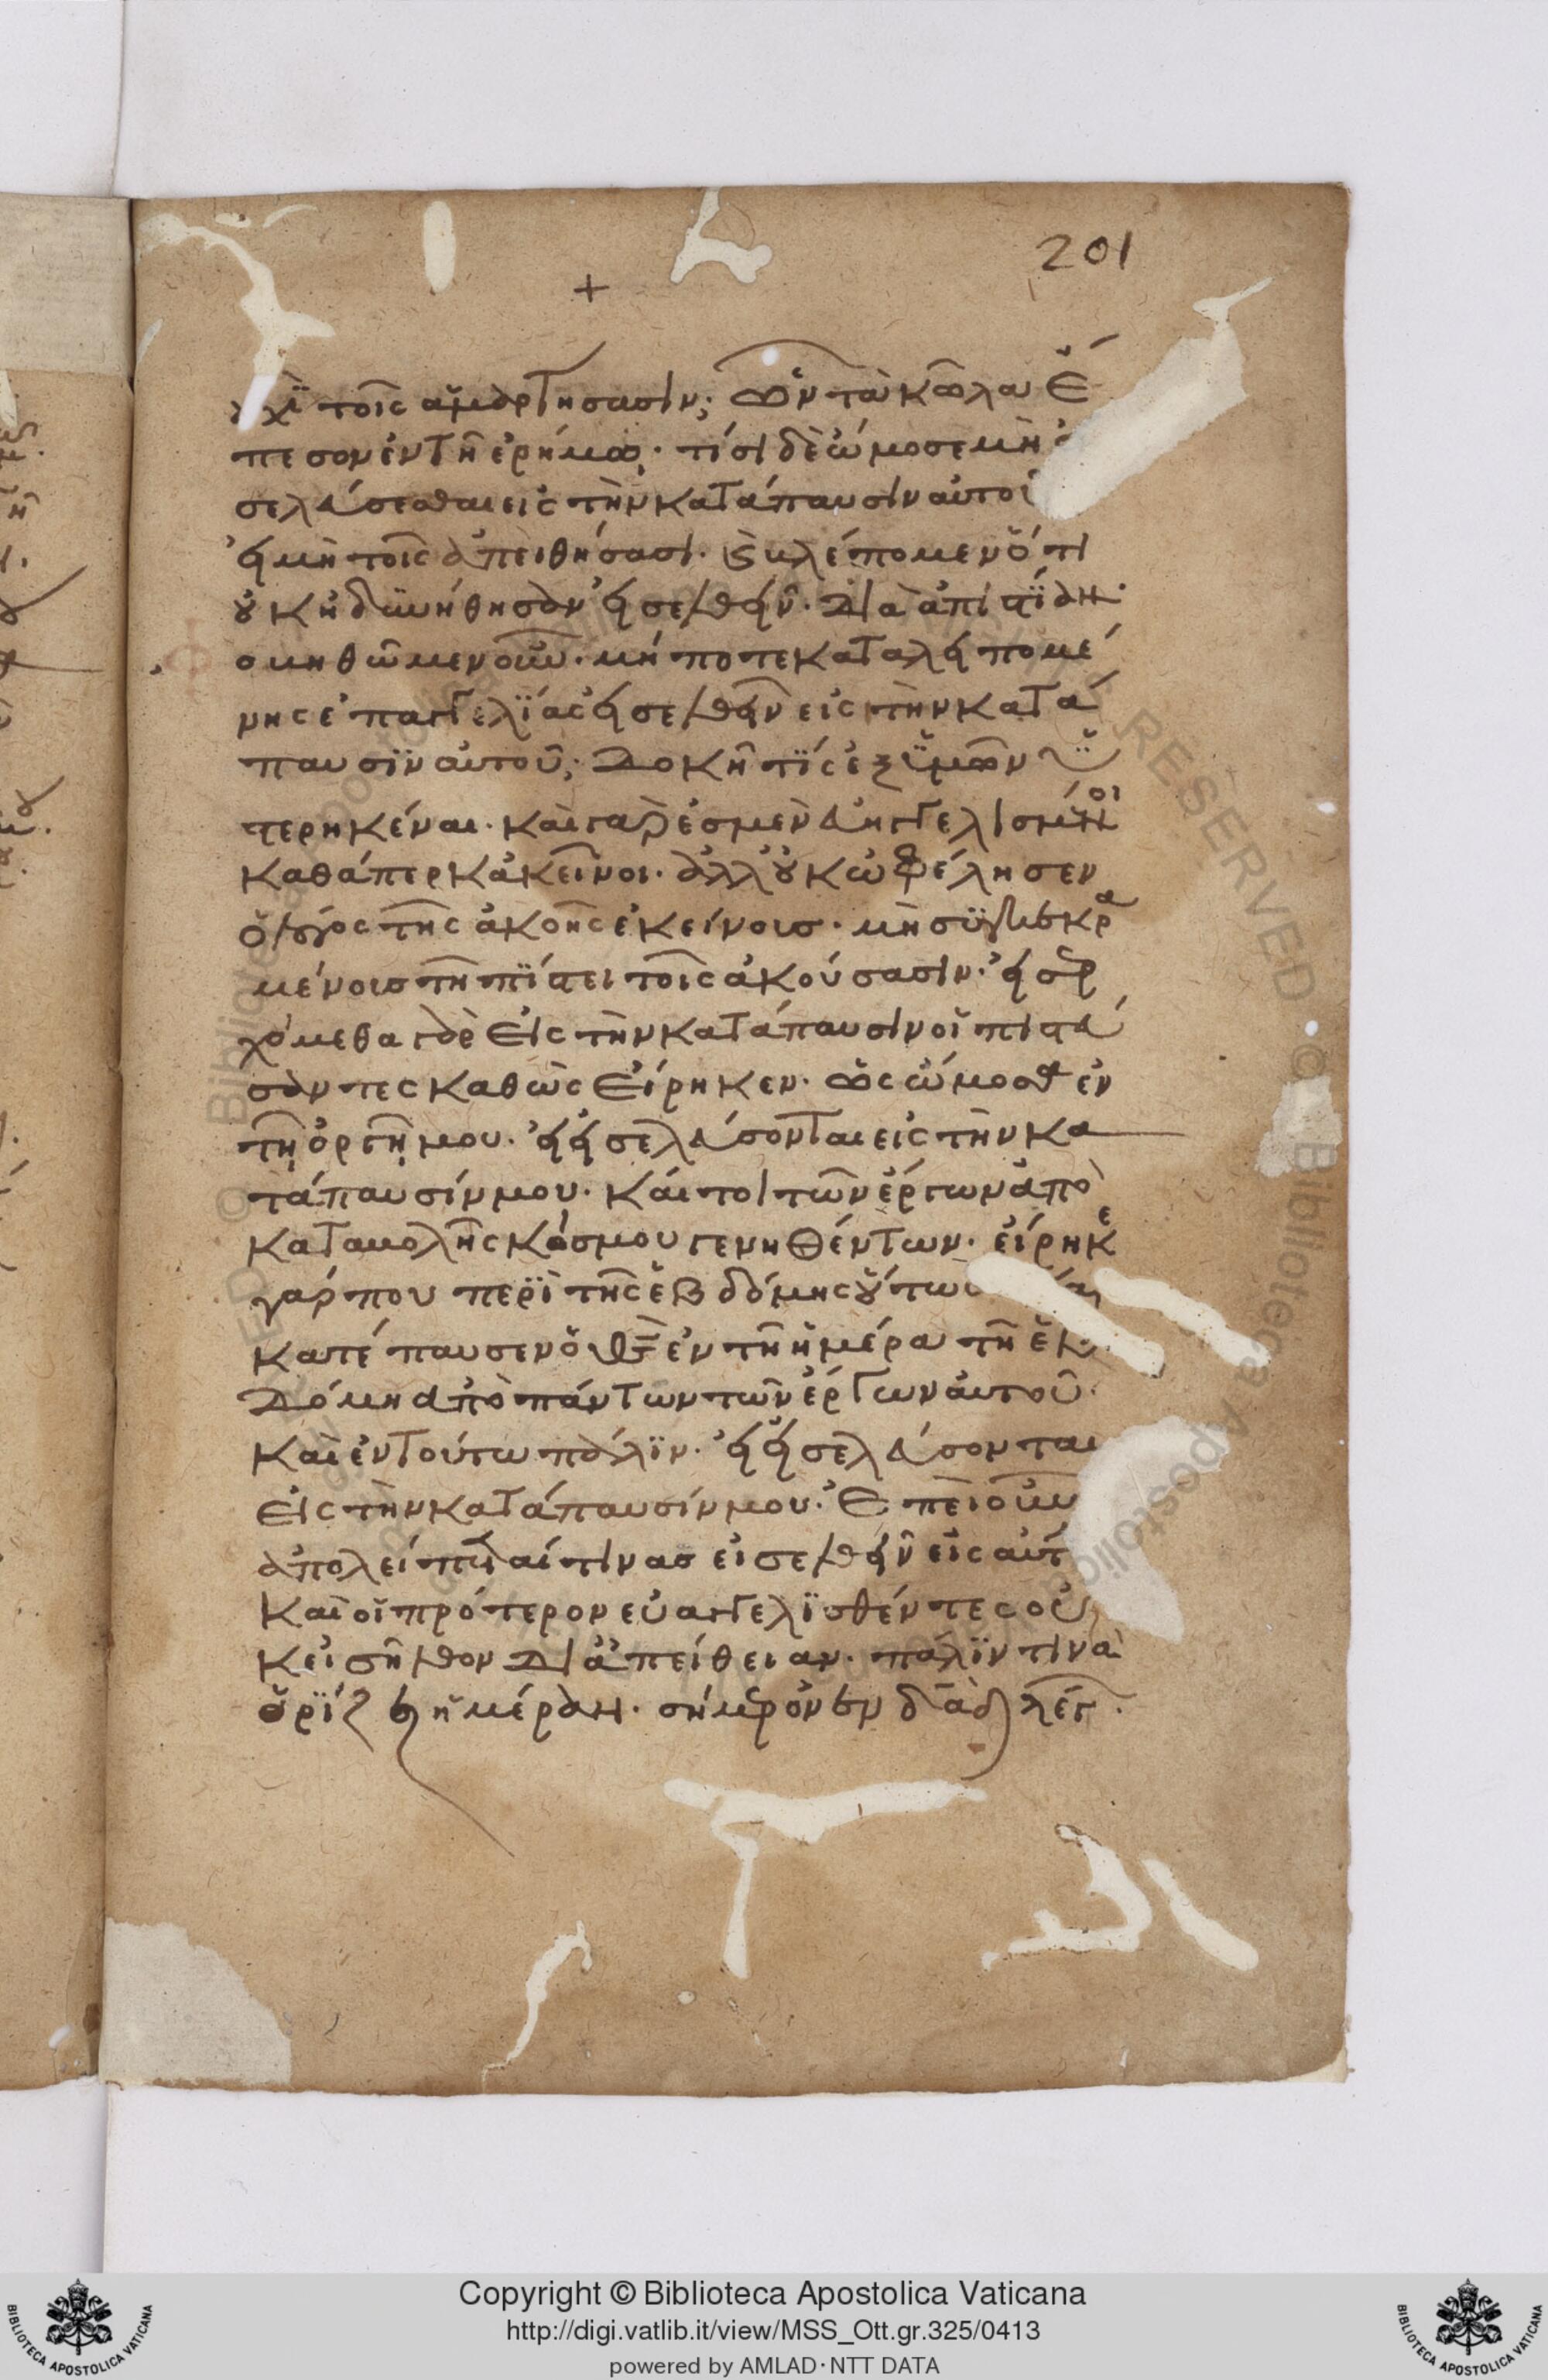 201
+
χὶ τοῖς ἁμαρτήσασιν; ὧν τὰ κῶλα ἔ
πεσον ἐν τῆ ἐρήμω; τίσι δὲ ὤμοσε μὴ
σελεύσεσθαι εἰς τὴν κατάπαυσιν αὐτοῦ
εἰ μὴ τοῖς ἀπειθήσασι. κ βλέπομεν ὅτι
οὐκ ἠδυνήθησαν εἰσελθεῖν. δια ἀπιστίαν.
οβηθῶμεν οὖν. μήποτε καταλειπομέ
νης ἐπαγγελίας εἰσελθεῖν εἰς τὴν κατά
παυσϊν αὐτοῦ; δοκῆ τϊς ἐξ ὑμῶν ὑ
τερηκέναι. καὶ γαρ ἐσμὲν εὐηγγελισμένοι
καθάπερ κἀκεῖνοι. ἀλλ οὐκ ὠφέλησεν
ὁ λόγος τῆς ἀκοῆς ἐκείνοις. μὴ συγκεκρα
μένοις τῆ πίστει τοῖς ἀκούσασιν. εἰσερ
χόμεθα γὰρ εἰς τὴν κατάπαυσιν οἱ πιστεύ
σαντες καθὼς εἴρηκεν. ὡς ὤμοσα ἐν
τῆ ὀργῆ μου. εἰ εἰσελεύσονται εἰς τὴν κα
τάπαυσίν μου. καίτοι τῶν ἔργων ἀπὸ
καταβολῆς κόσμου γενηθέντων. εἴρηκε
γάρ που περὶ τῆς ἑβδόμης οὕτως
κατέπαυσεν ὁ θς ἐν τῆ ἡμέρα τῆ ἑβ
δόμη ἀπὸ πάντων τῶν ἔργων αὐτοῦ.
καὶ ἐν τούτω πάλϊν. εἰ εἰσελεύσονται
εἰς τὴν κατάπαυσίν μου. ἐπεὶ οὖν
ἀπολείπεται τινας εἰσελθεῖν εἰς αὐτ
καὶ οἱ πρότερον εὐαγγελϊσθέντες οὐ
κ εἰσῆλθον δι ἀπείθειαν. πάλϊν τινὰ
ὁρίζει ἡμέραν. σήμερον ἐν δαδ λέγ.
Copyright © Biblioteca Apostolica Vaticana
http://digi.vatlib.it/view/MSS_Ott.gr.325/0413
powered by AMLAD·NTT DATA